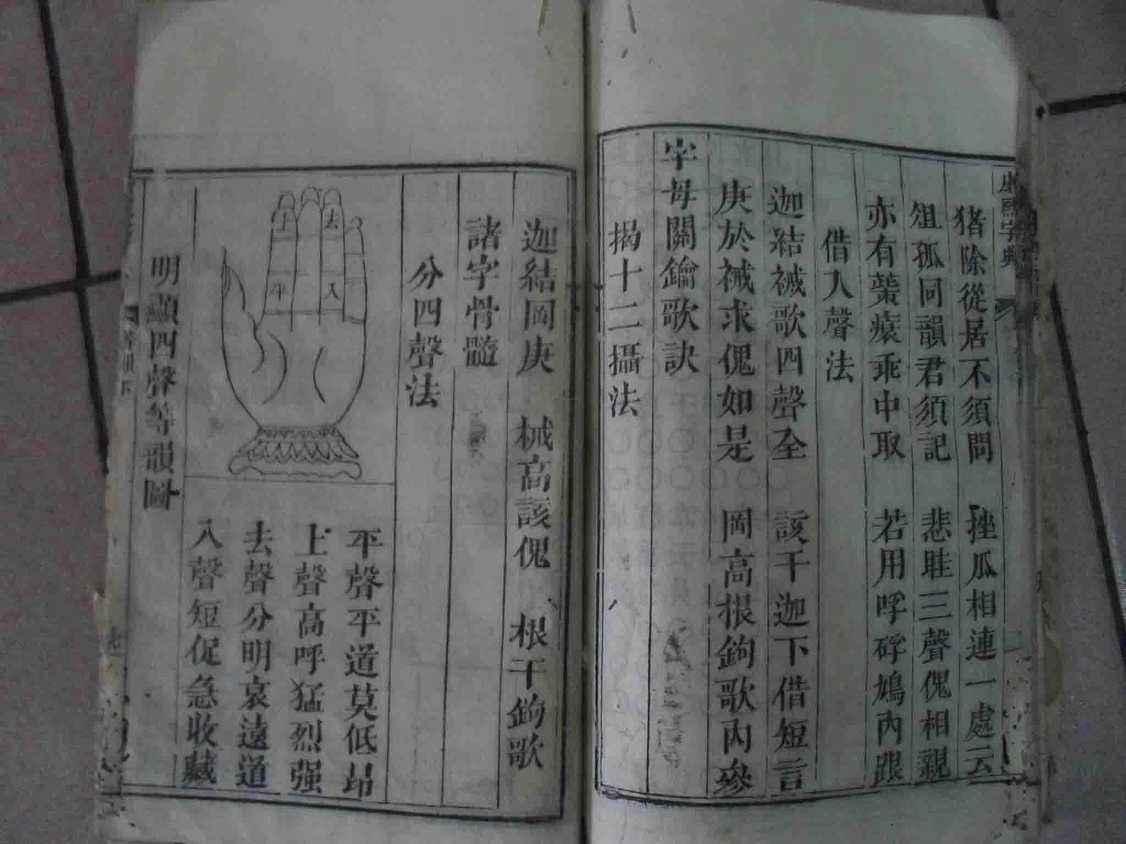 康熙字典
猪除從居不須問 挫瓜相連一處云
俎孤同韻君須記 悲眭三聲傀相親
亦有檠癀乖中取 若用呼碎鳩內跟
借入聲法
迦結祴歌四聲全 該干迦下借短言
庚於祴求傀如是 岡高根鉤歌內參
字母關鑰歌訣
揭十二攝法
迦結岡庚 祴高該傀 根干鉤歌
諸字骨髓
分四聲法
上 去
平 入
平聲平道莫低昂
上聲高呼猛烈强
去聲分明哀遠道
入聲短促急收藏
明顯四聲等韻圖